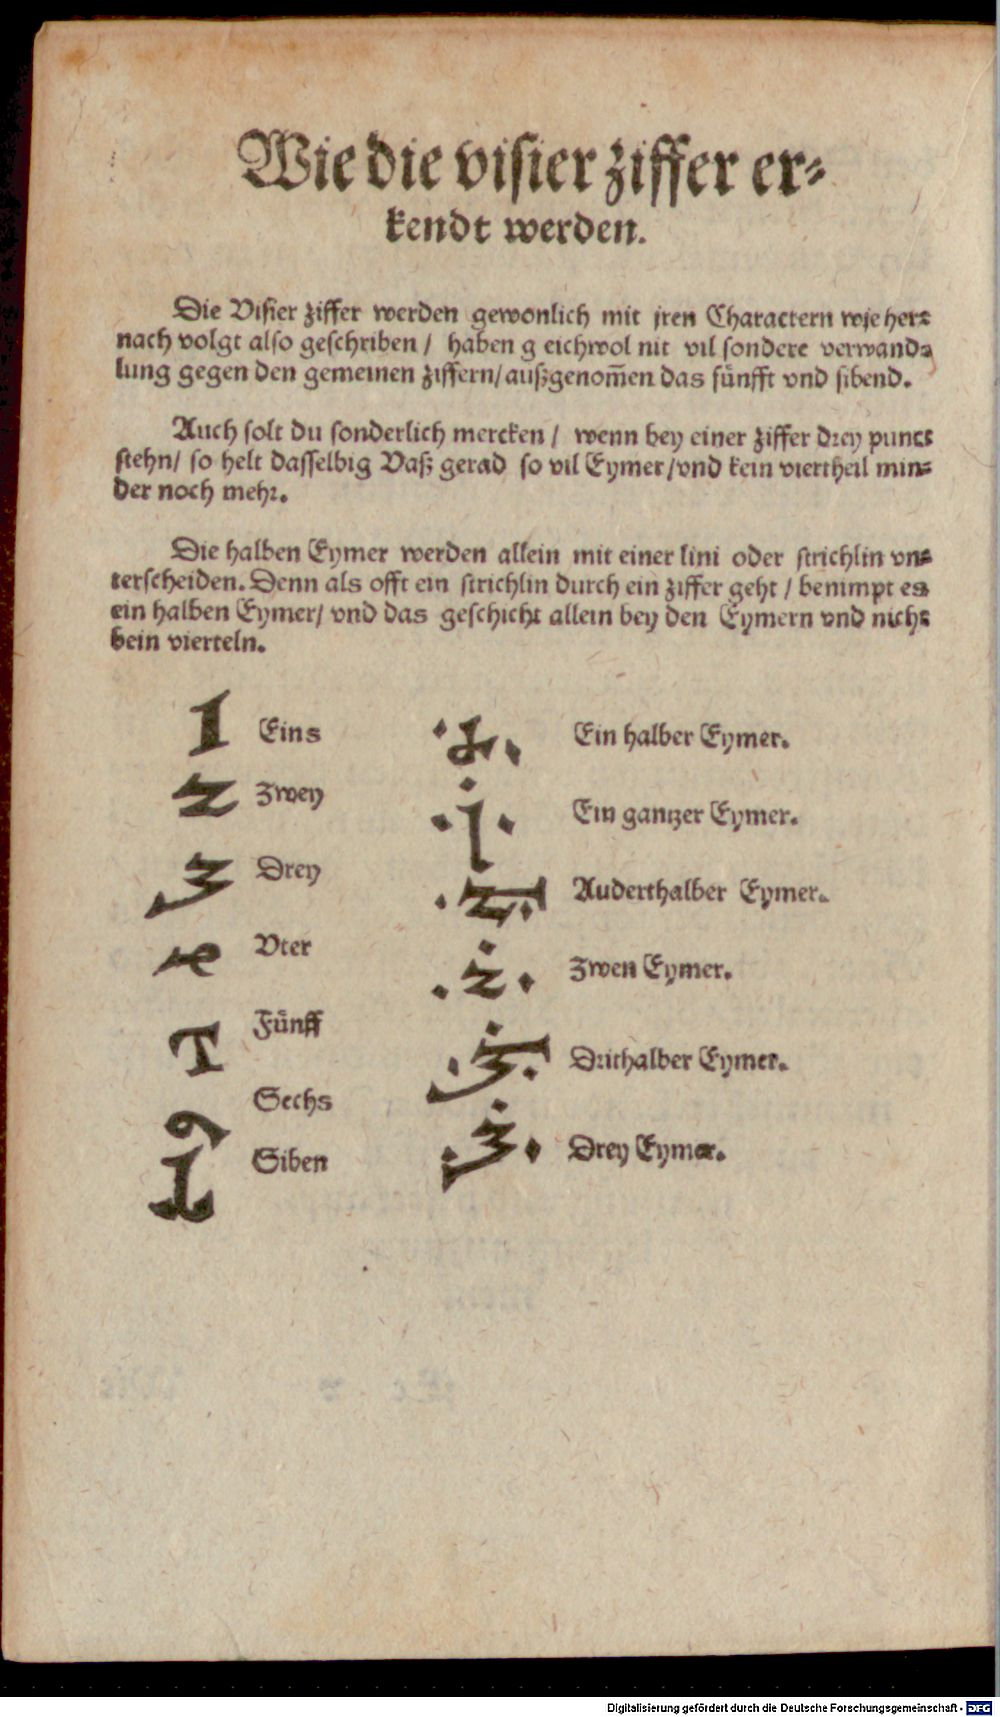 Wie die visier ziffer er⸗
kendt werden.
Die Visier ziffer werden gewonlich mit jren Charactern wie her⸗
nach volgt also geschriben / haben g eichwol nit vil sondere verwand⸗
lung gegen den gemeinen ziffern / außgenom̄en das fünfft vnd sibend.
Auch solt du sonderlich mercken / wenn bey einer ziffer drey punct
stehn / so helt dasselbig Vaß gerad so vil Eymer / vnd kein viertheil min⸗
der noch mehr.
Die halben Eymer werden allein mit einer lini oder strichlin vn⸗
terscheiden. Denn als offt ein strichlin durch ein ziffer geht / benimpt es
ein halben Eymer / vnd das geschicht allein bey den Eymern vnd nicht
bein vierteln.
1 Eins
2 Zwey
3 Drey
4 Vier
5 Fünff
6 Sechs
7 Siben
Ein halber Eymer.
·1· Ein gantzer Eymer.
Auderthalber Eymer.
·2· Zwen Eymer.
Drithalber Eymer.
·3· Drey Eymer.
Digitalisierung gefördert durch die Deutsche Forschungsgemeinschaft - DFG